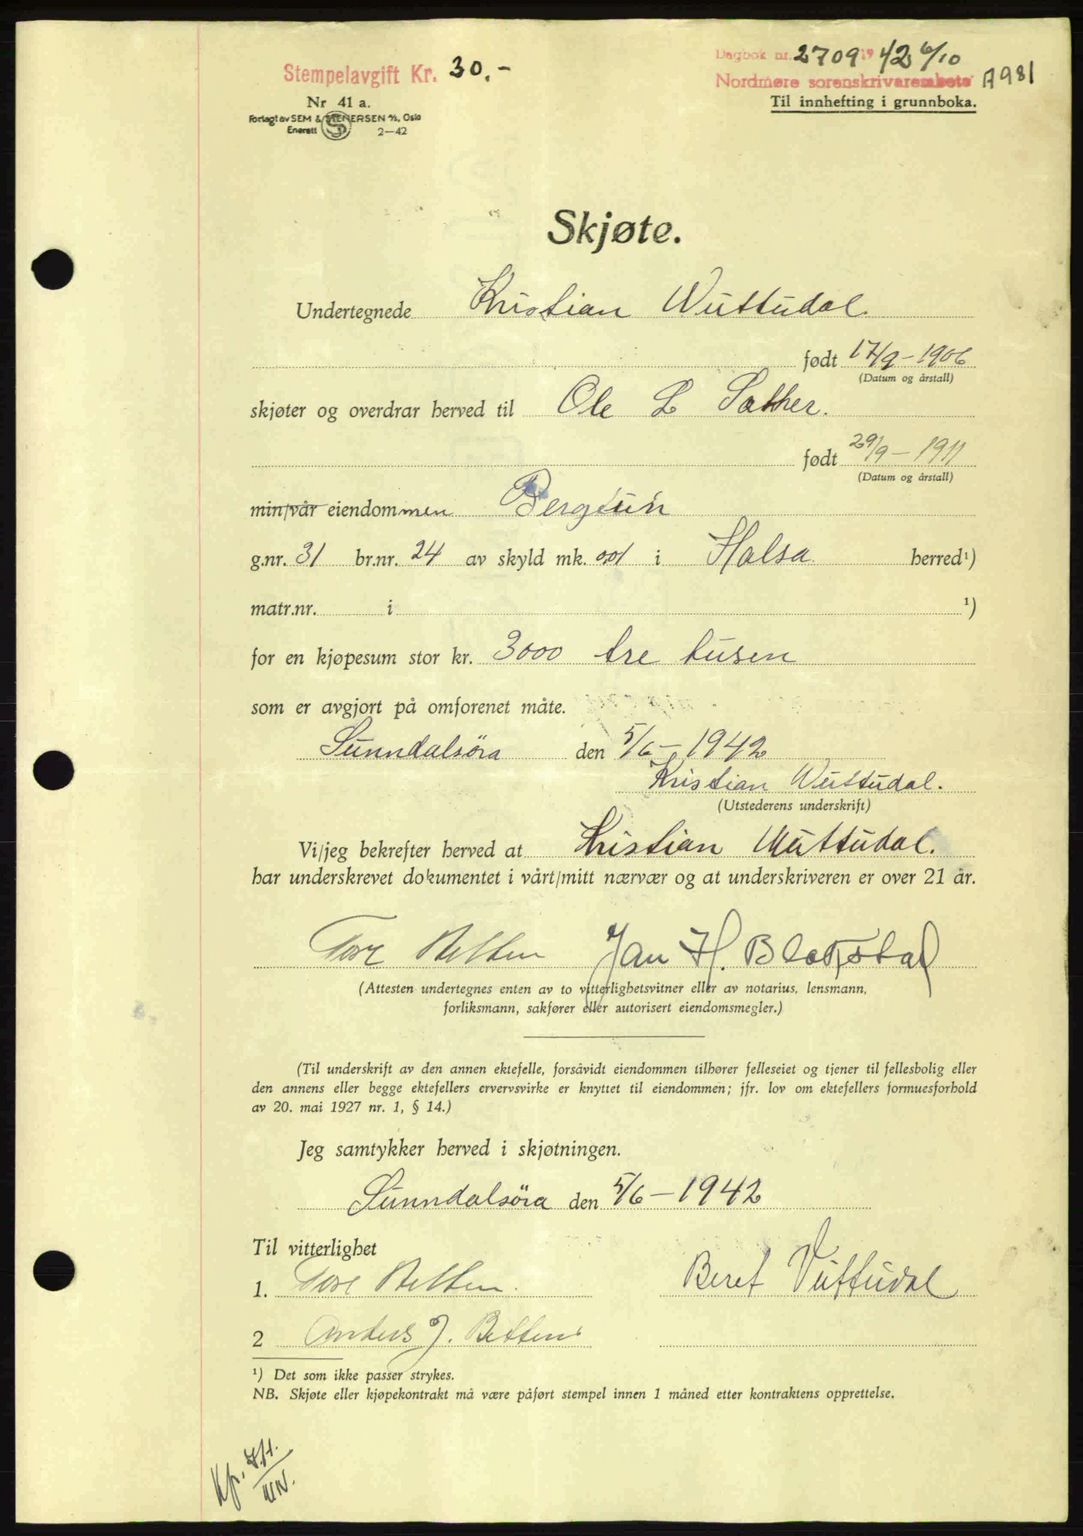 Stempelavgift Kr. 30.-
Dagbok nr. 2709 1942 6/10
Nordmøre sorenskriverembete A981
Nr 41 a.
Til innhefting i grunnboka.
Forlagt av SEM & STENERSEN A/S, Oslo
Enerett 2—42
Skjøte.
Undertegnede Kristian Wuttudal
født 17/9-1906
(Datum og årstall)
skjøter og overdrar herved til Ole L Sæther.
født 29/9-1911
(Datum og årstall)
min/vår eiendommen Bergtun
g.nr. 31 br.nr. 24 av skyld mk. 0,01 i Halsa herred¹)
matr.nr. i ¹)
for en kjøpesum stor kr. 3000 tre tusen
som er avgjort på omforenet måte.
Sunndalsöra den 5/6-1942
Kristian Wuttudal.
(Utstederens underskrift)
Vi/jeg bekrefter herved at Kristian Wuttudal.
har underskrevet dokumentet i vårt/mitt nærvær og at underskriveren er over 21 år.
Tore Betten Jan H. Blokstad
(Attesten undertegnes enten av to vitterlighetsvitner eller av notarius, lensmann,
forliksmann, sakfører eller autorisert eiendomsmegler.)
(Til underskrift av den annen ektefelle, forsåvidt eiendommen tilhører felleseiet og tjener til fellesbolig eller
den annens eller begge ektefellers ervervsvirke er knyttet til eiendommen; jfr. lov om ektefellers formuesforhold
av 20. mai 1927 nr. 1, § 14.)
Jeg samtykker herved i skjøtningen.
Sunndalsöra den 5/6-1942
Til vitterlighet
1. Tore Betten. Beret Vuttudal
2 Anders J. Betten
¹) Det som ikke passer strykes.
NB. Skjøte eller kjøpekontrakt må være påført stempel innen 1 måned etter kontraktens opprettelse.